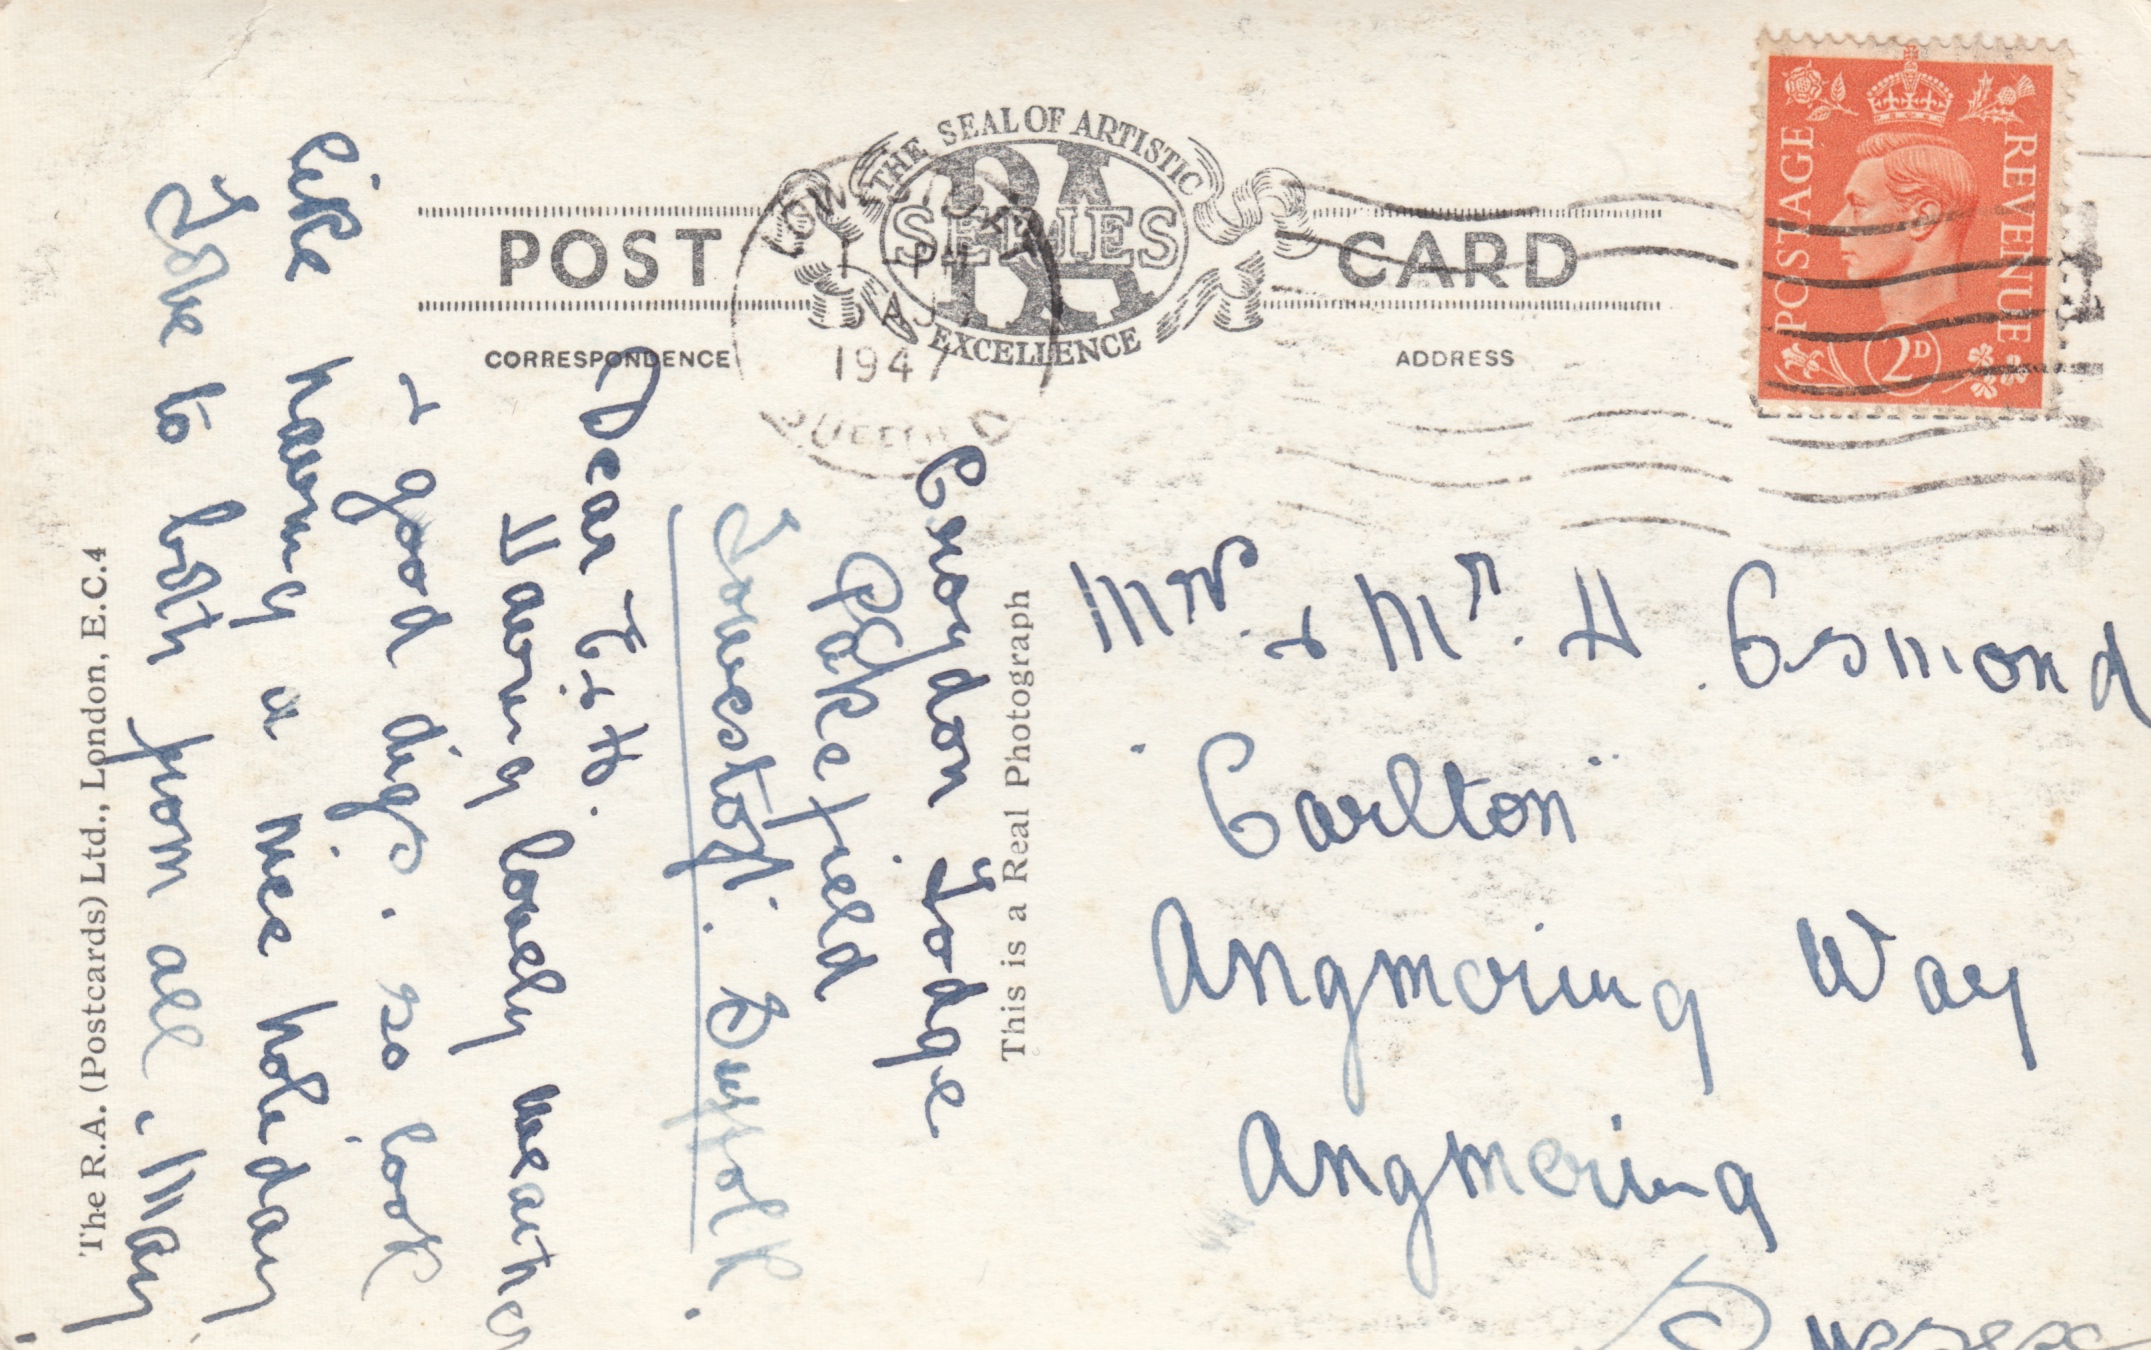 THE SEAL OF ARTISTIC
RA
SERIES
EXCELLENCE
POST CARD
CORRESPONDENCE
ADDRESS
LOWESTOFT
1 - PM
1947
SUFFOLK
POSTAGE
REVENUE
2D
Croydon Lodge
Pakefield
Lowestoft. Suffolk.
Dear E. & H.
Having lovely weather
& good digs. so look
like having a nice holiday
Love to both from all, May.
This is a Real Photograph
The R.A. (Postcards) Ltd., London, E.C.4
Mrs. & Mr. H. Osmond
"Carlton"
Angmering Way
Angmering
Sussex